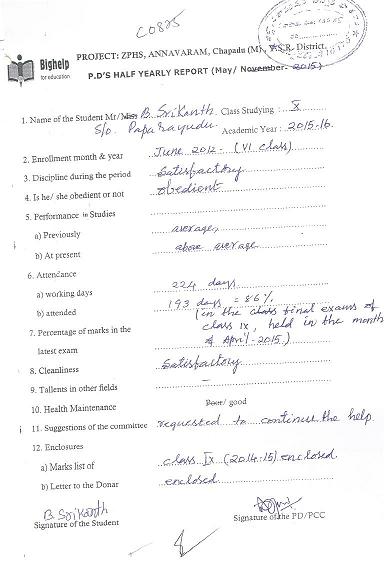 C0825
Bighelp
for education
PROJECT: ZPHS, ANNAVARAM, Chapadu (M), Y.S.R. District.
P.D'S HALF YEARLY REPORT (May/ November- 2015)
1. Name of the Student Mr/Miss B. Srikanth. Class Studying : X
S/o. Paparayudu. Academic Year : 2015-16.
2. Enrollment month & year June 2012 - (VI class)
3. Discipline during the period Satisfactory
4. Is he/ she obedient or not obedient
5. Performance in Studies
a) Previously average,
b) At present above average
6. Attendance
a) working days 224 days
b) attended 193 days = 86%
(in the class final exams of
7. Percentage of marks in the class IX, held in the month
latest exam of April-2015.)
8. Cleanliness Satisfactory
9. Tallents in other fields –
10. Health Maintenance Poor/ good
11. Suggestions of the committee requested to continue the help.
12. Enclosures
a) Marks list of class IX (2014-15) enclosed.
b) Letter to the Donar enclosed
B. Srikanth
Signature of the Student Signature of the PD/PCC